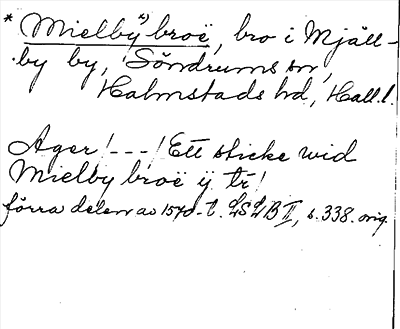 * Mielbÿ broë, bro i Mjäll-
by by, Söndrums sn,
Halmstads hd, Hall. l.
Ager /---/ Ett sticke wid
Mielby broë ÿ tr/
förra delen av 1570-t. LSLB II, s. 338. orig.